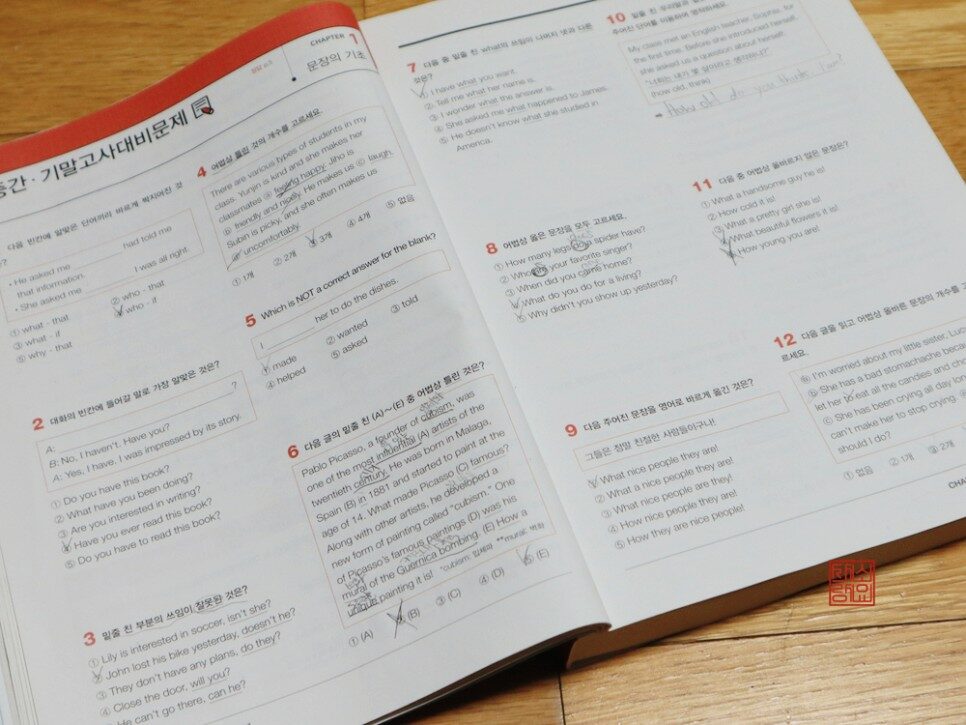 CHAPTER 1
문장의 기초
중간 · 기말고사대비문제
다음 빈칸에 알맞은 단어끼리 바르게 짝지어진 것
?
• He asked me ________ had told me
that information.
• She asked me ________ I was all right.
① what - that
② who - that
③ what - if
④ who - if
⑤ why - that
2 대화의 빈칸에 들어갈 말로 가장 알맞은 것은?
A: ________?
B: No, I haven't. Have you?
A: Yes, I have. I was impressed by its story.
① Do you have this book?
② What have you been doing?
③ Are you interested in writing?
④ Have you ever read this book?
⑤ Do you have to read this book?
3 밑줄 친 부분의 쓰임이 잘못된 것은?
① Lily is interested in soccer, isn't she?
② John lost his bike yesterday, doesn't he?
③ They don't have any plans, do they?
④ Close the door, will you?
He can't go there, can he?
4 어법상 틀린 것의 개수를 고르세요.
There are various types of students in my
class. Yunjin is kind and she makes her
classmates ⓐ feeling happy. Jiho is
ⓑ friendly and nicely. He makes us ⓒ laugh.
Subin is picky, and she often makes us
ⓓ uncomfortably.
① 1개
② 2개
③ 3개
④ 4개
⑤ 없음
5 Which is NOT a correct answer for the blank?
I ________ her to do the dishes.
① made
② wanted
③ told
④ helped
⑤ asked
6 다음 글의 밑줄 친 (A)~(E) 중 어법상 틀린 것은?
Pablo Picasso, a founder of cubism, was
one of the most influential (A) artists of the
twentieth century. He was born in Malaga,
Spain (B) in 1881 and started to paint at the
age of 14. What made Picasso (C) famous?
Along with other artists, he developed a
new form of painting called "cubism." One
of Picasso's famous paintings (D) was his
mural of the Guernica bombing. (E) How a
unique painting it is!
*cubism: 입체파 **mural: 벽화
① (A)
② (B)
③ (C)
④ (D)
⑤ (E)
7 다음 중 밑줄 친 what의 쓰임이 나머지 넷과 다른
것은?
① I have what you want.
② Tell me what her name is.
③ I wonder what the answer is.
④ She asked me what happened to James.
⑤ He doesn't know what she studied in
America.
8 어법상 옳은 문장을 모두 고르세요.
① How many legs a spider have?
② Who your favorite singer?
③ When did you came home?
④ What do you do for a living?
⑤ Why didn't you show up yesterday?
9 다음 주어진 문장을 영어로 바르게 옮긴 것은?
그들은 정말 친절한 사람들이구나!
① What nice people they are!
② What a nice people they are!
③ What nice people are they!
④ How nice people they are!
⑤ How they are nice people!
10 밑줄 친 우리말과
주어진 단어를 이용하여 영작하세요.
My class met an English teacher, Sophia, for
the first time. Before she introduced herself,
she asked us a question about herself.
"너희는 내가 몇 살이라고 생각하니?"
(how old, think)
➡ How old do you think I am?
11 다음 중 어법상 올바르지 않은 문장은?
① What a handsome guy he is!
② How cold it is!
③ What a pretty girl she is!
④ What beautiful flowers it is!
⑤ How young you are!
12 다음 글을 읽고 어법상 올바른 문장의 개수를 고
르세요.
ⓐ I'm worried about my little sister, Luc
ⓑ She has a bad stomachache because
let her to eat all the candies and choc
ⓒ She has been crying all day long
can't make her to stop crying. ⓓ
should I do?
① 없음
② 1개
③ 2개
CHA